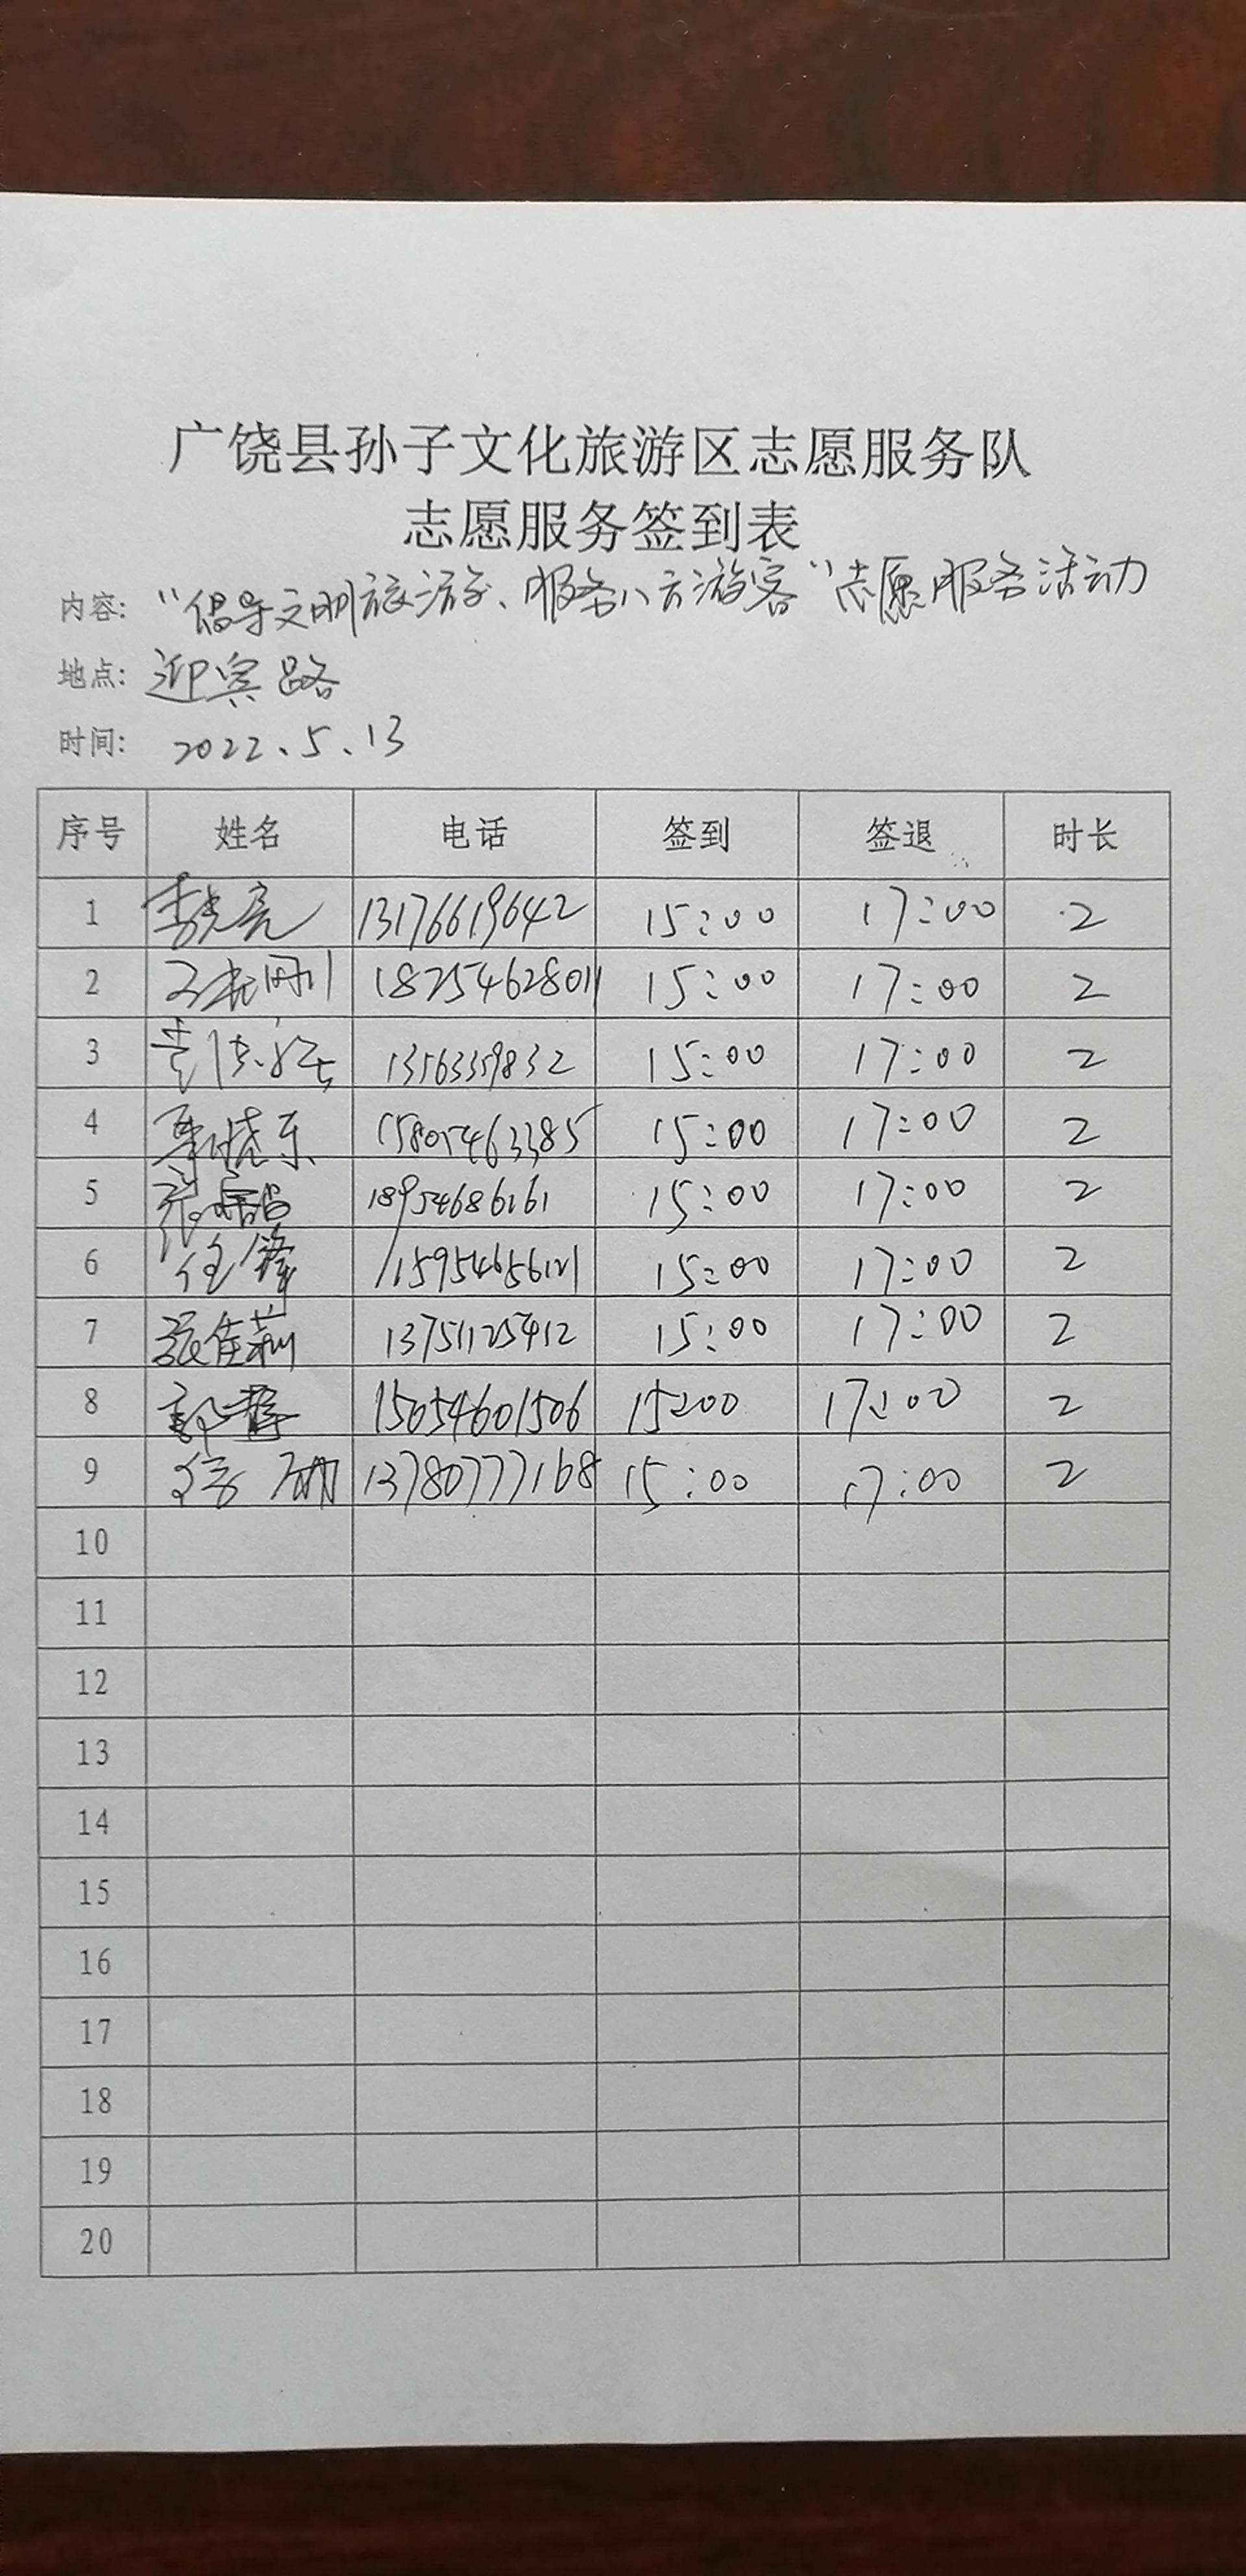 广饶县孙子文化旅游区志愿服务队
志愿服务签到表
内容: “倡导文明旅游、服务八方游客”志愿服务活动
地点: 迎宾路
时间: 2022.5.13
序号 姓名 电话 签到 签退 时长
1 13176619642 15:00 17:00 2
2 18254628011 15:00 17:00 2
3 13563359832 15:00 17:00 2
4 15805463385 15:00 17:00 2
5 18954686161 15:00 17:00 2
6 任锋 15954656121 15:00 17:00 2
7 张佳莉 13751125412 15:00 17:00 2
8 15054601506 15:00 17:00 2
9 13780777168 15:00 17:00 2
10
11
12
13
14
15
16
17
18
19
20